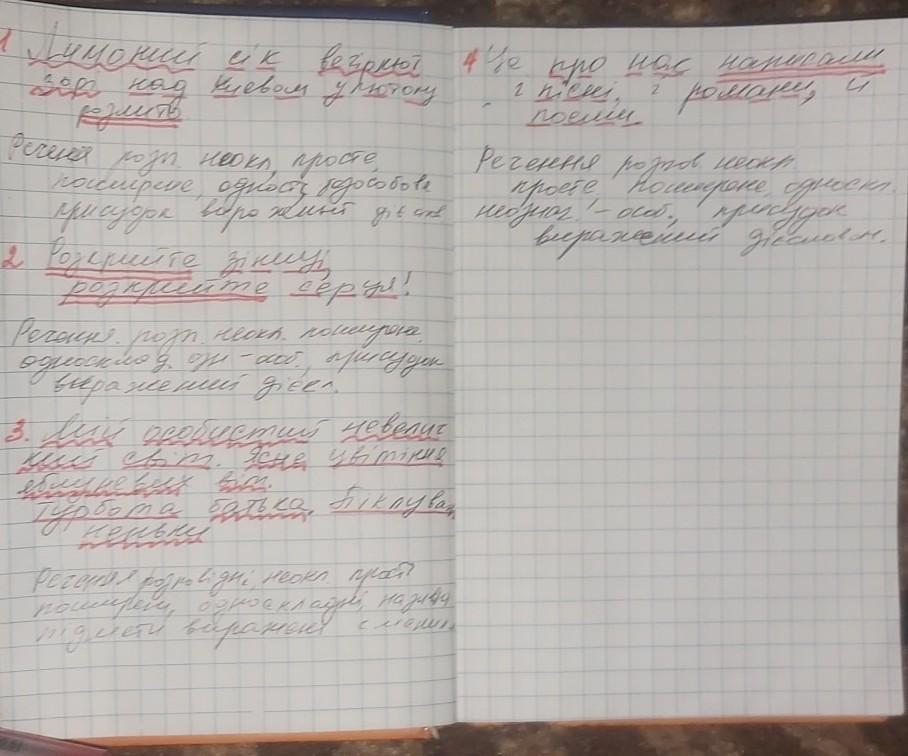 1 Лимонний сік вечірньої
зорі над Києвом у лютому
розлито.
Речення розп. неокл., просте,
поширене, односкл, безособове
присудок виражений дієсл
2 Розкрийте зіниці,
розкрийте серця!
Речення розп. неокл. поширене.
односклад. озн-особ., присудок
виражений дієсл.
3. Мій особистий невелич
кий світ. Ясне цвітіння
яблуневих віт.
Турбота батька. Піклуван
неньки
Речення розповідні, неокл. прості
поширені, односкладні, називні
підмети виражені іменн.
4 Ще про нас напишуть
і пісні, і романи, й
поеми.
Речення розпов. неокл.
просте. поширене, односкл.
неознач.-особ., присудок
виражений дієсловом.